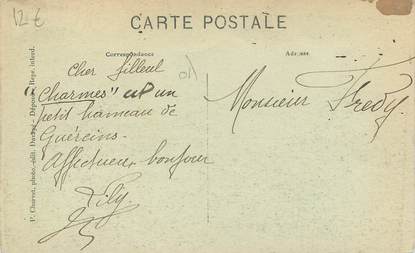 12 €
CARTE POSTALE
Correspondance
Adresse
Cher filleul
"Charmes" est un
petit hameau de
Guéreins.
Affectueux bonjour
Monsieur Fredy.
P. Charvet, photo.-édit. Déposé - Repr. interd.